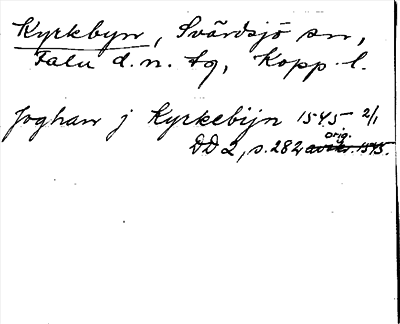 Kyrkbyn, Svärdsjö sn,
Falu d.n. tg, Kopp. l.
Joghan j Kyrkebijn 1545 2/1
orig.
DD 2, s. 282 avskr. 1545.